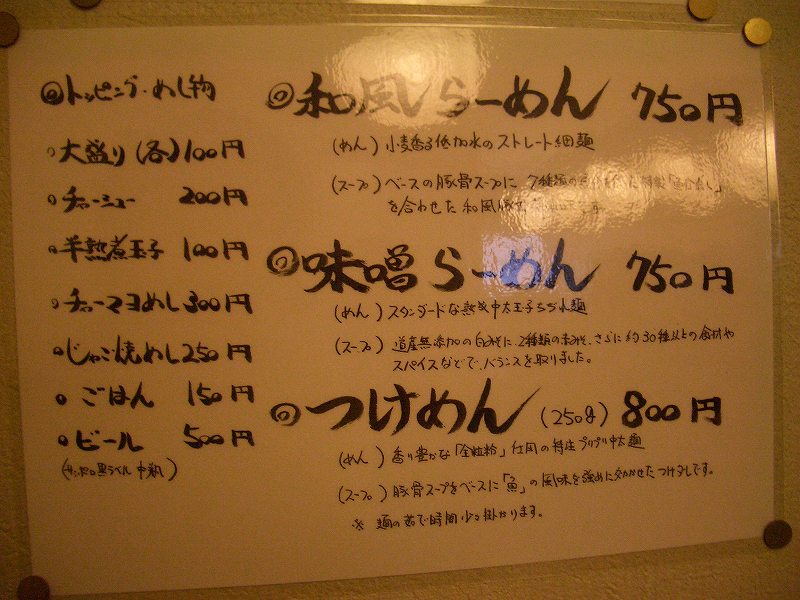 ◎トッピング・めし物
○大盛り(各)100円
○チャーシュー 200円
○半熟煮玉子 100円
○チャーマヨめし300円
○じゃこ焼めし250円
○ごはん 150円
○ビール 500円
(サッポロ黒ラベル 中瓶)
◎和風らーめん 750円
(めん) 小麦香る低加水のストレート細麺
(スープ) ベースの豚骨スープに 7種類の
を合わせた 和風
◎味噌らーめん 750円
(めん) スタンダードな熟成中太玉子ちぢれ麺
(スープ) 道産無添加の白みそに、2種類の赤みそ、さらに約30種以上の食材や
スパイスなどで、バランスを取りました。
◎つけめん (250g) 800円
(めん) 香り豊かな「全粒粉」仕用の特注プリプリ中太麺
(スープ) 豚骨スープをベースに「魚」の風味を強めに効かせたつけダレです。
※ 麺の茹で時間少々掛かります。